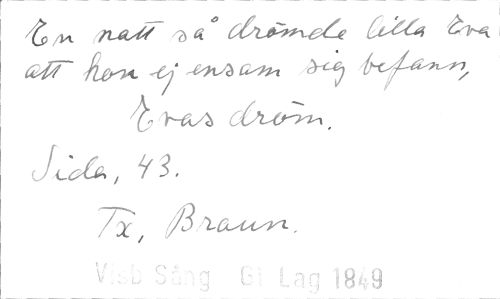 En natt så drömde lilla Eva
att hon ej ensam sig befann,
Evas dröm.
Sida, 43.
Tx, Braun.
Visb Sång Gl Lag 1849